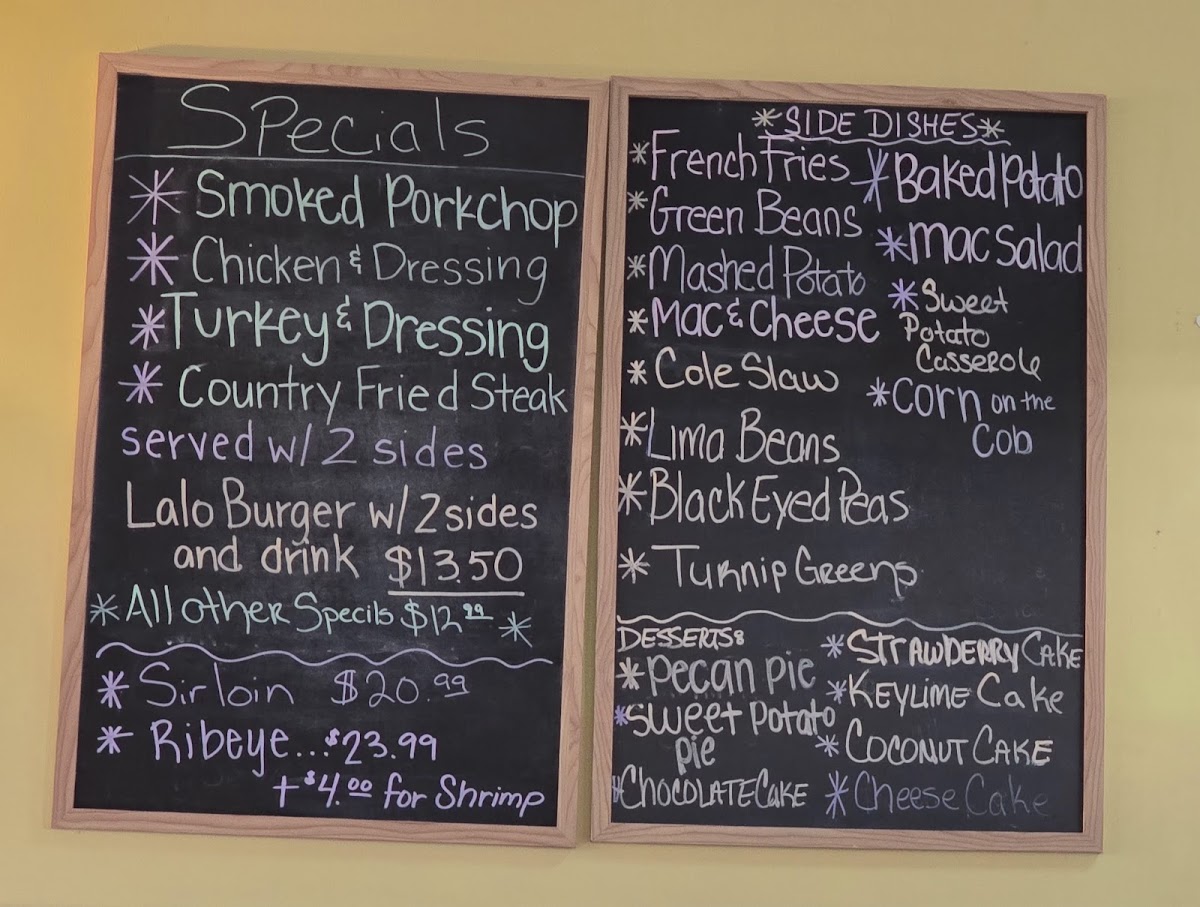 Specials
* Smoked Porkchop
* Chicken & Dressing
* Turkey & Dressing
* Country Fried Steak
served w/ 2 sides
Lalo Burger w/ 2 sides
and drink $13.50
* All other Specils $12.99 *
* Sirloin $20.99
* Ribeye...$23.99
+ $4.00 for Shrimp
*SIDE DISHES*
* French Fries
* Green Beans
* Mashed Potato
* Mac & Cheese
* Cole Slaw
* Lima Beans
* Black Eyed Peas
* Turnip Greens
* Baked Potato
* Mac Salad
* Sweet
Potato
Casserole
* Corn on the
Cob
DESSERTS:
* Pecan Pie
* Sweet Potato
Pie
* Chocolate Cake
* STRAWBERRY CAKE
* KEYLIME Cake
* COCONUT CAKE
* Cheese Cake